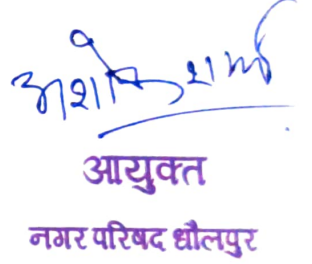 अशोक शर्मा
आयुक्त
नगर परिषद धौलपुर